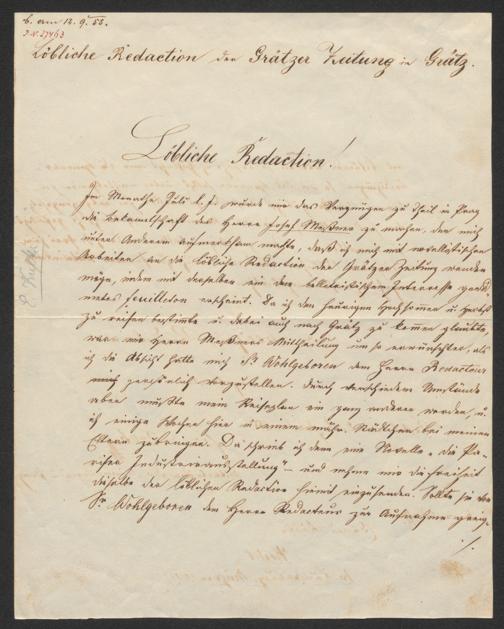 b. am 12. 9. 55.
J.N. 27463
Löbliche Redaction der Grätzer Zeitung in Grätz.
Löbliche Redaction!
Im Monathe Juli l. J. wurde mir das Vergnügen zu Theil in Prag
die Bekanntschaft des Herrn Josef Meßner zu machen, der mich
unter Anderem aufmerksam machte, daß ich mich mit novellistischen
Arbeiten an die löbliche Redaction der Grätzer Zeitung wenden
möge, indem mit derselben ein dem belletristischen Interesse gewid-
metes Feuilleton erscheint. Da ich den heurigen Hochsommer u Herbst
zu reisen bestimmte u dabei auch nach Grätz zu kommen glaubte,
war mir Herrn Meßners Mittheilung um so erwünschter, als
ich die Absicht hatte mich Sr Wohlgeboren dem Herrn Redacteur
persönlich vorzustellen. Durch verschiedene Umstände
aber mußte mein Reiseplan ein ganz anderer werden, u
ich einige Wochen hier in einem mähr. Städtchen bei meinen
Eltern zubringen. Da schrieb ich denn eine Novelle "die Pa-
riser Industrieausstellung" – und nehme mir die Freiheit
dieselbe der löblichen Redaction hiemit einzusenden. Sollte sie von
Sr Wohlgeboren dem Herrn Redacteur zur Aufnahme geeig-
./.